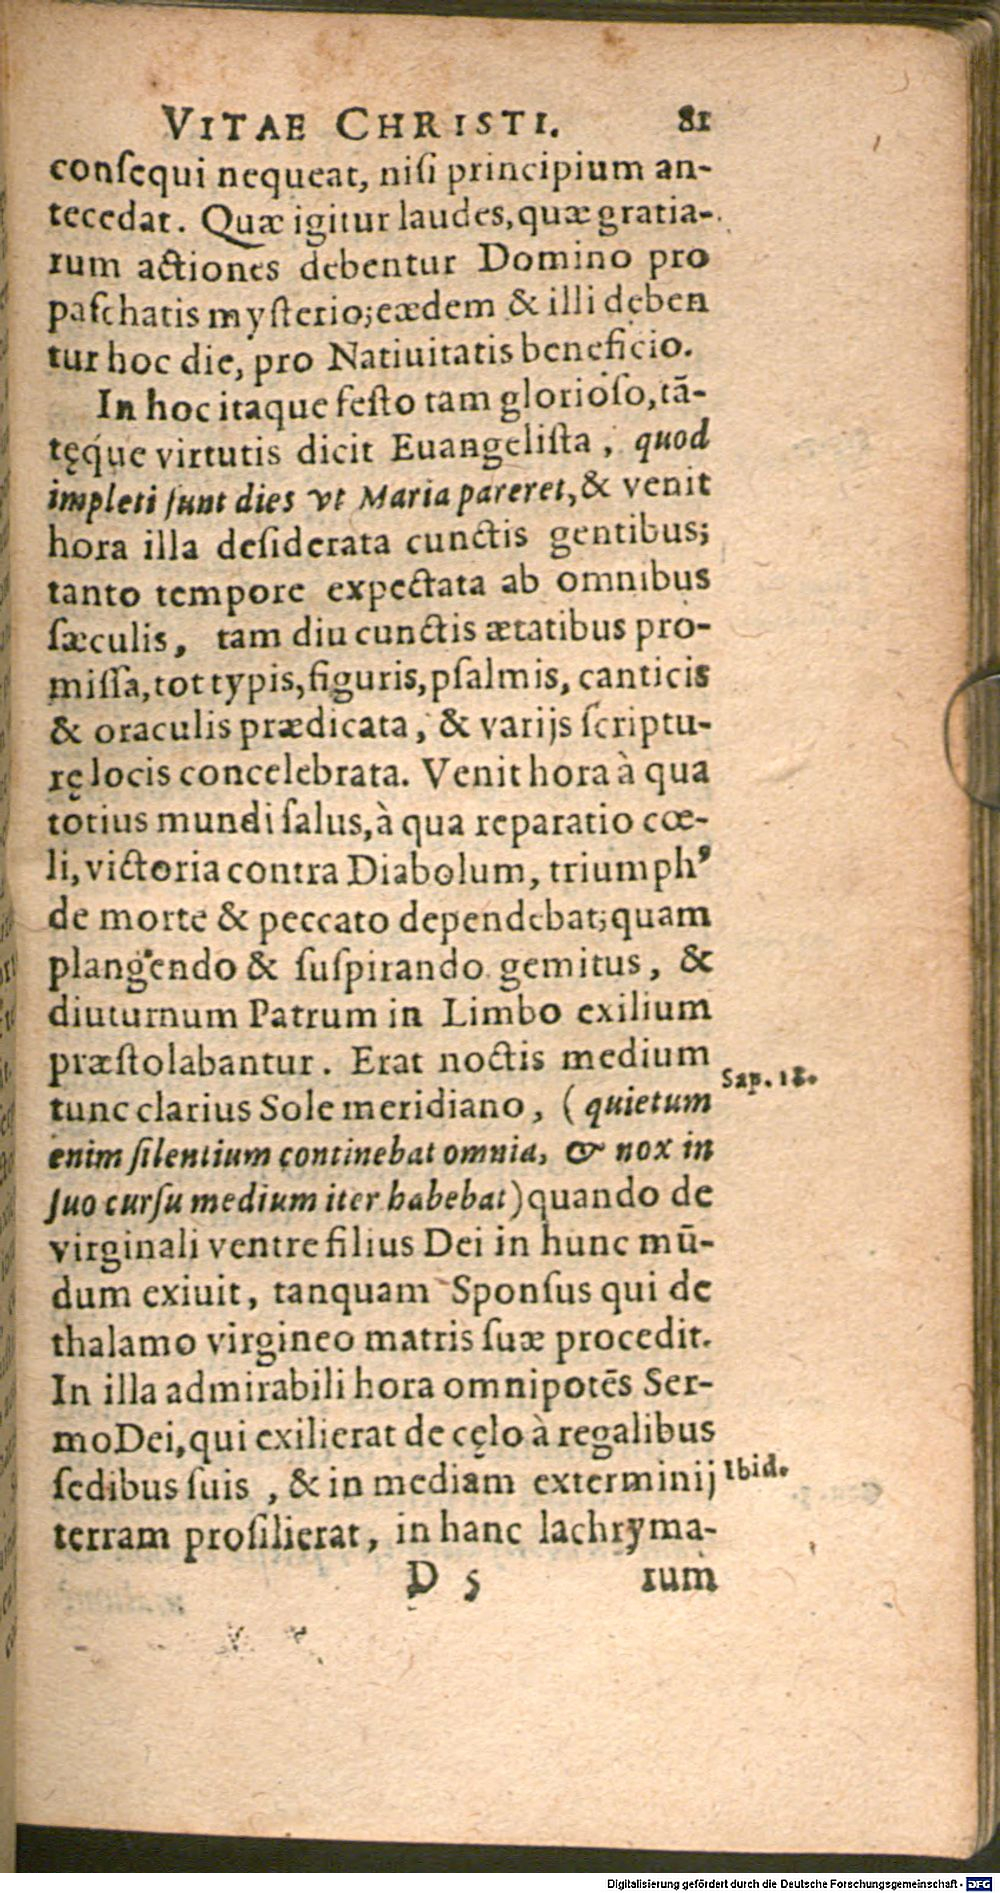 VITAE CHRISTI. 81
conſequi nequeat, niſi principium an-
tecedat. Quæ igitur laudes, quæ gratia-
rum actiones debentur Domino pro
paſchatis myſterio; eædem & illi deben
tur hoc die, pro Natiuitatis beneficio.
In hoc itaque feſto tam glorioſo, tā-
tęque virtutis dicit Euangeliſta, quod
impleti ſunt dies vt Maria pareret, & venit
hora illa deſiderata cunctis gentibus;
tanto tempore expectata ab omnibus
ſæculis, tam diu cunctis ætatibus pro-
miſſa, tot typis, figuris, pſalmis, canticis
& oraculis prædicata, & varijs ſcriptu-
rę locis concelebrata. Venit hora à qua
totius mundi ſalus, à qua reparatio cœ-
li, victoria contra Diabolum, triumphꝰ
de morte & peccato dependebat; quam
plangendo & ſuſpirando gemitus, &
diuturnum Patrum in Limbo exilium
præſtolabantur. Erat noctis medium
tunc clarius Sole meridiano, (quietum Sap. 18.
enim ſilentium continebat omnia, & nox in
ſuo curſu medium iter habebat) quando de
virginali ventre filius Dei in hunc mū-
dum exiuit, tanquam Sponſus qui de
thalamo virgineo matris ſuæ procedit.
In illa admirabili hora omnipotēs Ser-
mo Dei, qui exilierat de cęlo à regalibus
ſedibus ſuis, & in mediam exterminij Ibid.
terram proſilierat, in hanc lachryma-
D 5 rum
Digitalisierung gefördert durch die Deutsche Forschungsgemeinschaft - DFG